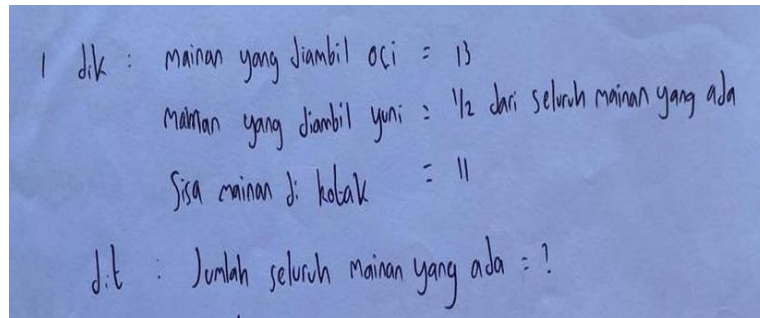 1 dik : mainan yang diambil oci = 13
mainan yang diambil yuni = 1/2 dari seluruh mainan yang ada
Sisa mainan di kotak = 11
dit : Jumlah seluruh mainan yang ada = ?